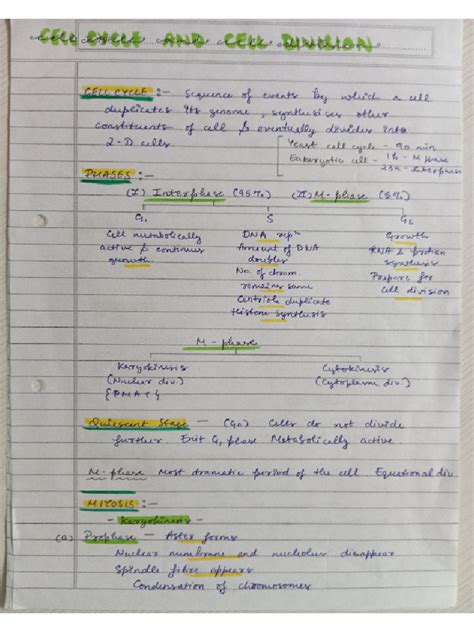 CELL CYCLE AND CELL DIVISION
CELL CYCLE :- Sequence of events by which a cell
duplicates its genome, synthesises other
constituents of cell & eventually divides into
2-D cells.
Yeast cell cycle - 90 min
Eukaryotic cell - 1h - M phase
23h - Interphase
PHASES :-
(I) Interphase (95%) (II) M-phase (5%)
G1 S G2
Cell metabolically
active & continues
growth
DNA repn
Amount of DNA
doubles
No. of chrom.
remains same
Centriole duplicate
Histone synthesis
Growth
RNA & protien
synthesis
Prepare for
cell division
M - phase
Karyokinesis
(Nuclear div.)
{PMAT}
Cytokinesis
(Cytoplasm div.)
Quiescent Stage - (G0) Cells do not divide
further Exit G1 phase Metabolically active
M-phase Most dramatic period of the cell Equational div.
MITOSIS :-
- Karyokinesis -
(a) Prophase - Aster forms
Nuclear membrane and nucleolus disappear
Spindle fibre appears
Condensation of chromosomes